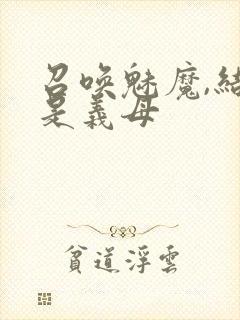 召喚魅魔,結
是義母
貧道浮雲